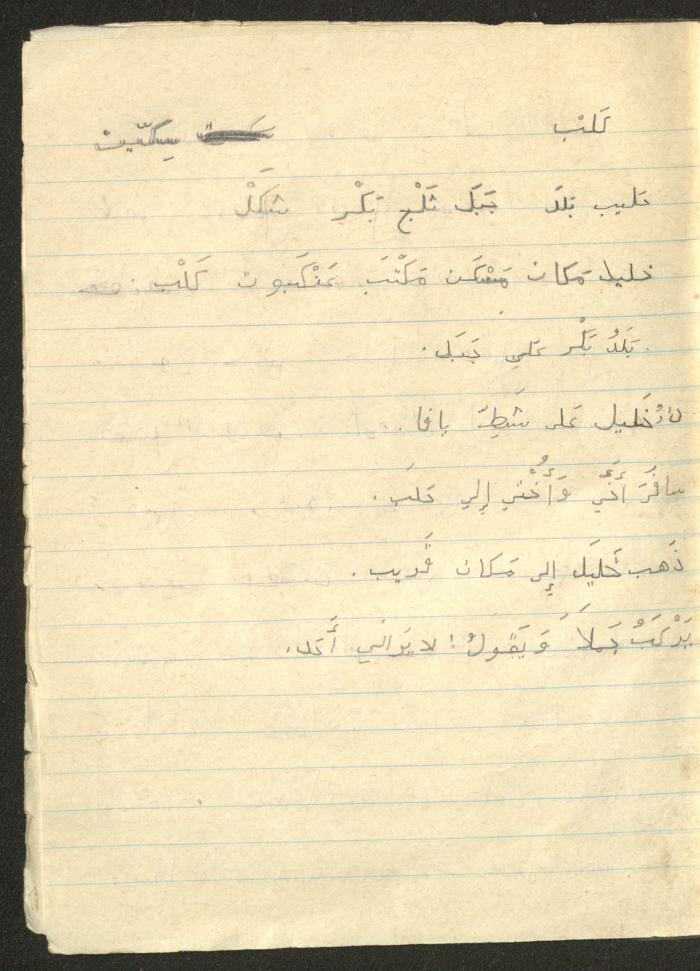 كَلْب سِكّين
حَليب بَلَد جَبَل ثَلْج بَكْر شَكْل
خليل مَكان مَسْكَن مَكْتَب عَنْكَبوت كَلْب
بَلَدُ بَكْر عَلى جَبَل.
خَليل عَلى شَطِّ يافا.
سافَرَ أَخي وَأُخْتي إِلى حَلَب.
ذَهب خَليل إِلى مَكان قَريب.
يَرْكَبُ جَمَلاً وَيَقولُ: لا يَراني أَحَد.